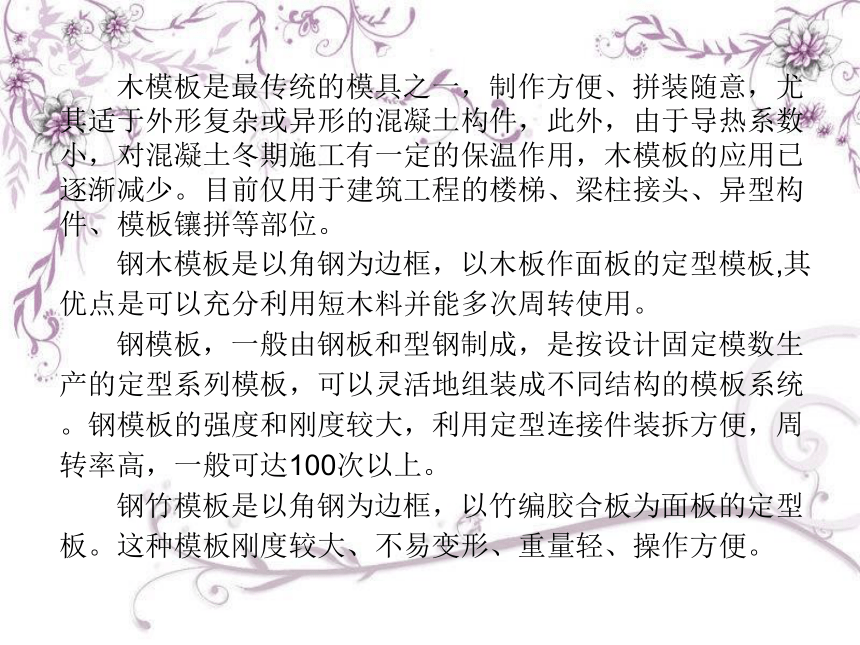 木模板是最传统的模具之一，制作方便、拼装随意，尤
其适于外形复杂或异形的混凝土构件，此外，由于导热系数
小，对混凝土冬期施工有一定的保温作用，木模板的应用已
逐渐减少。目前仅用于建筑工程的楼梯、梁柱接头、异型构
件、模板镶拼等部位。
钢木模板是以角钢为边框，以木板作面板的定型模板,其
优点是可以充分利用短木料并能多次周转使用。
钢模板，一般由钢板和型钢制成，是按设计固定模数生
产的定型系列模板，可以灵活地组装成不同结构的模板系统
。钢模板的强度和刚度较大，利用定型连接件装拆方便，周
转率高，一般可达100次以上。
钢竹模板是以角钢为边框，以竹编胶合板为面板的定型
板。这种模板刚度较大、不易变形、重量轻、操作方便。